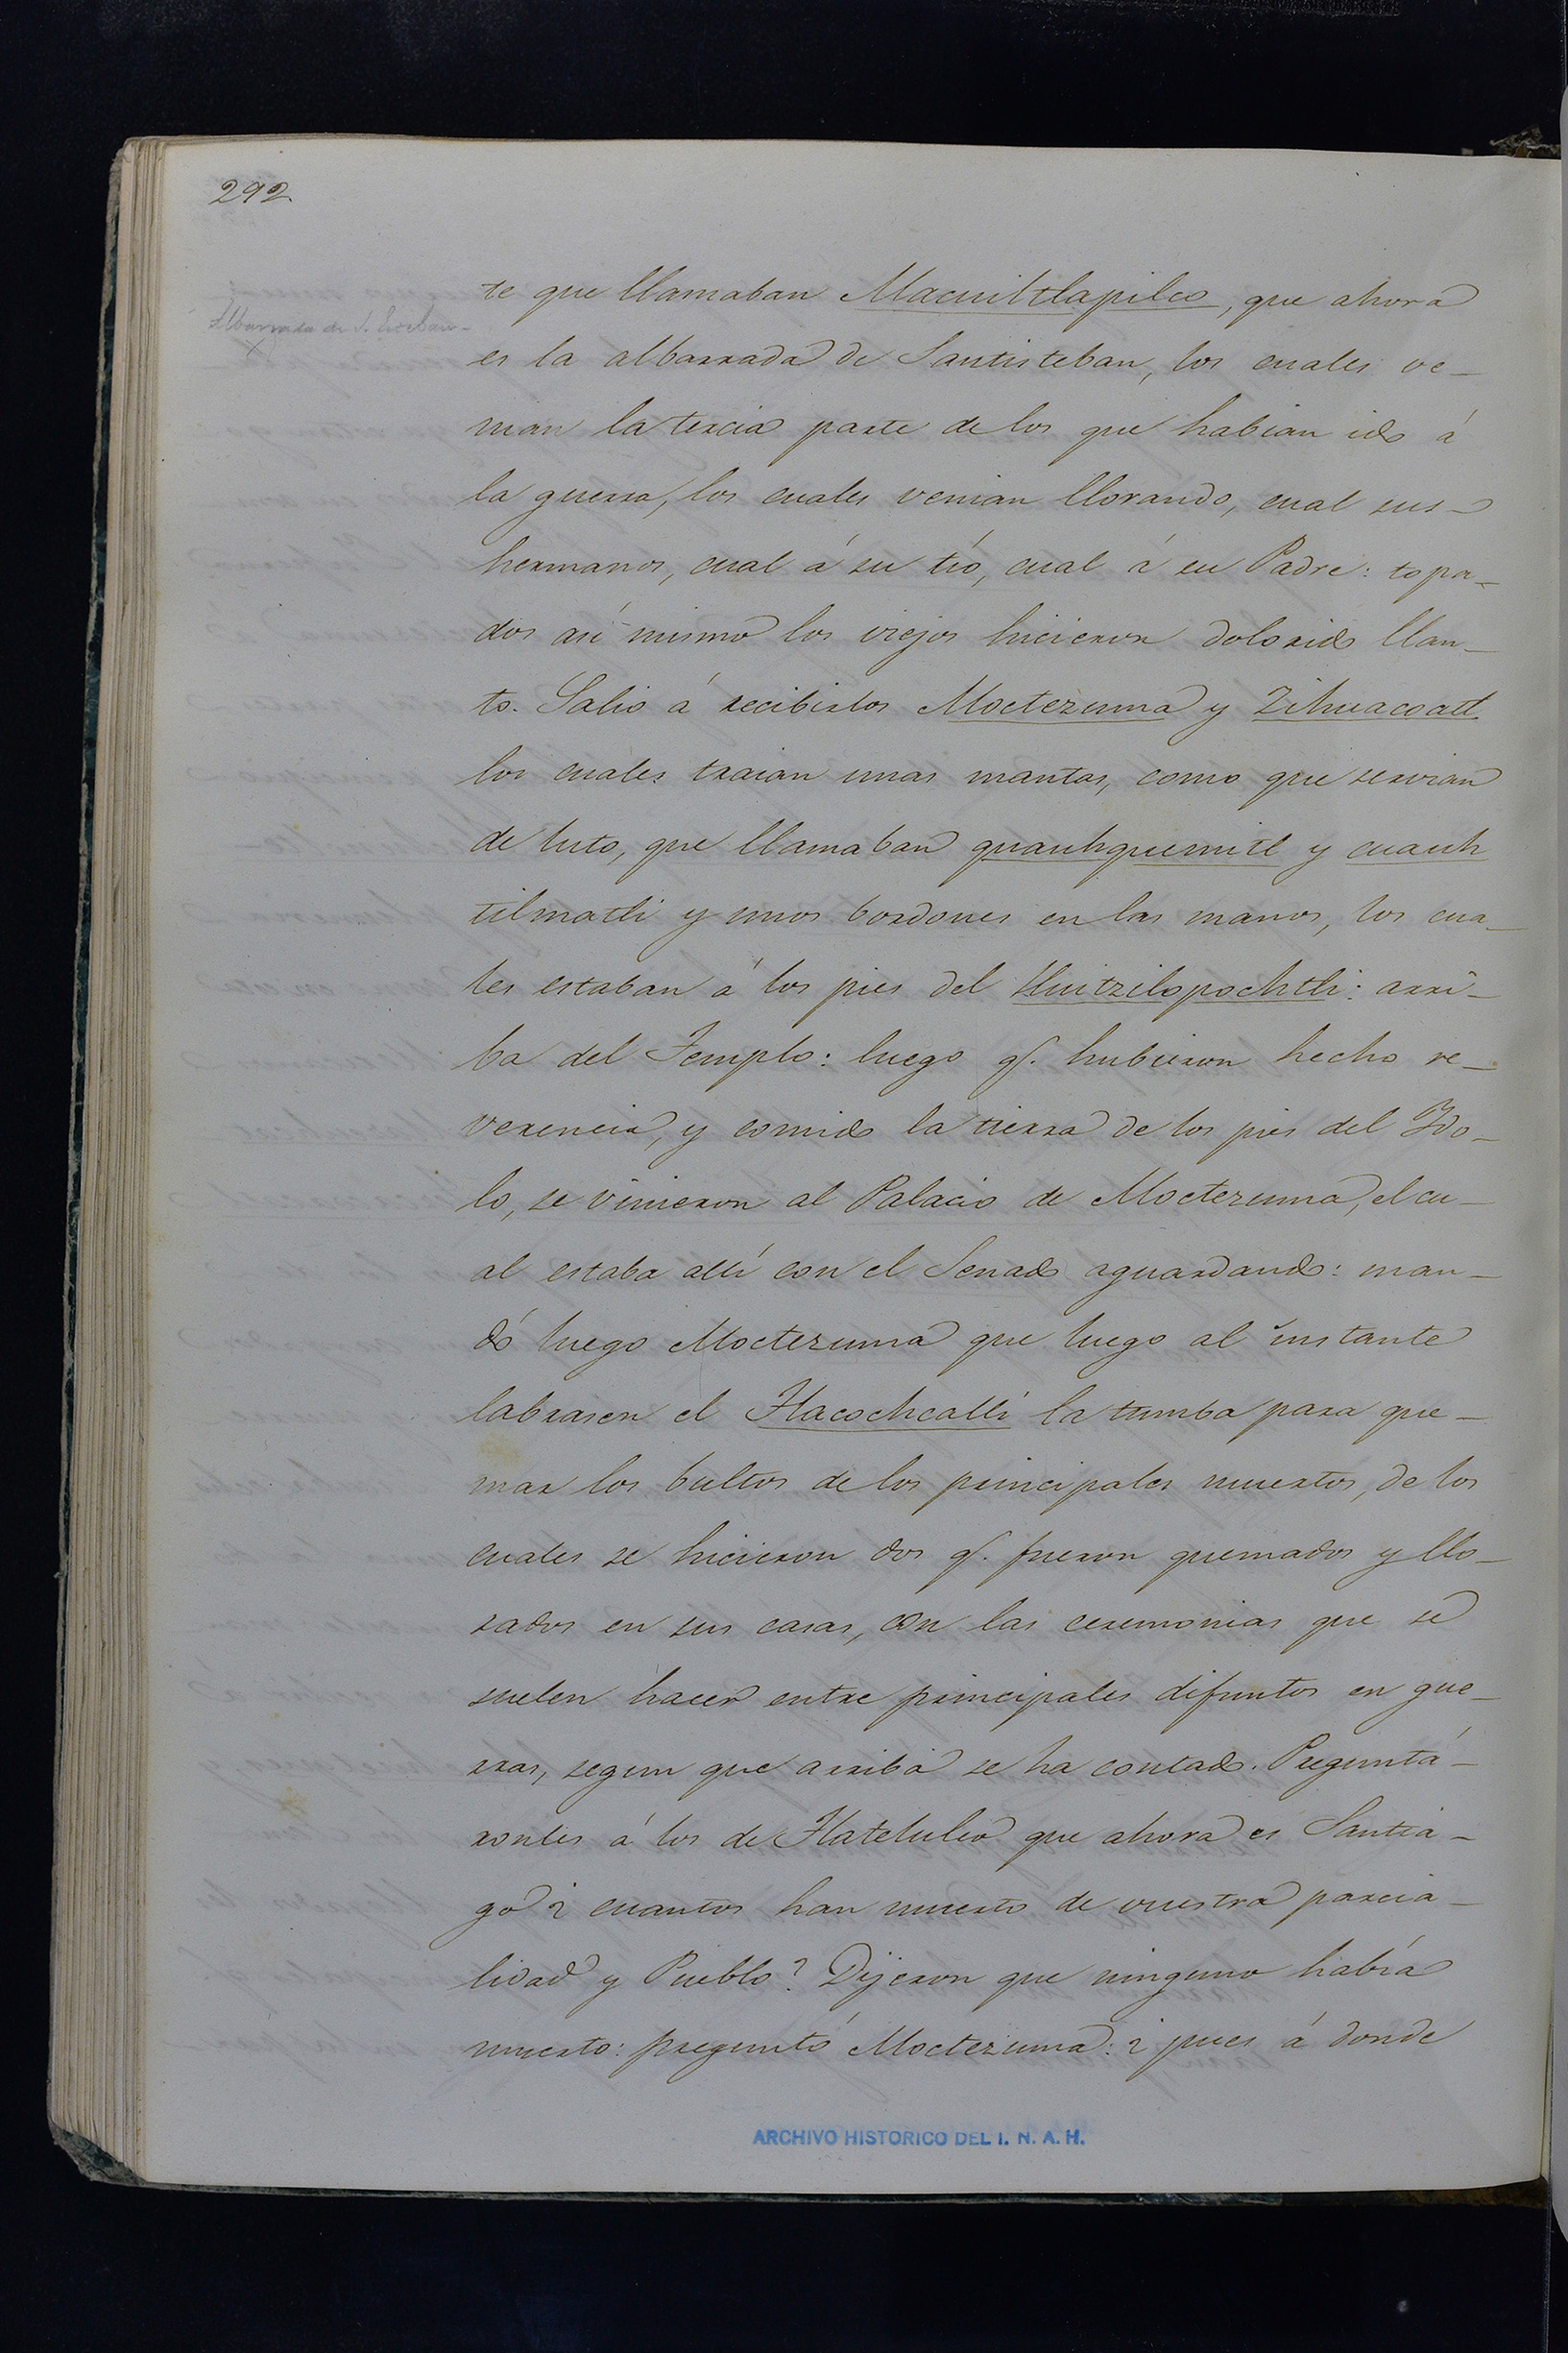 292
Albarrada de S. Esteban
te que llamaban Macuiltlapilco, que ahora
es la albarrada de Santisteban, los cuales ve-
nian la tercia parte de los que habian ido á
la guerra, los cuales venian llorando, cual sus
hermanos, cual á su tió, cual á su Padre: topa-
dos así mismo los viejos hicieron dolorido llan-
to. Salio á recibirlos Moctezuma y Zihuacoatl
los cuales traian unas mantas, como que servian
de luto, que llamaban quauhquemitl y cuauh
tilmatli y unos bordones en las manos, los cua-
les estaban á los pies del Huitzilopochtli: arri-
ba del Templo: luego q. hubieron hecho re-
verencia, y comido la tierra de los pies del Ydo-
lo, se vinieron al Palacio de Moctezuma, el cu-
al estaba allí con el Senado aguardando: man-
dó luego Moctezuma que luego al instante
labrasen el Tlacochcalli la tumba para que-
mar los bultos de los principales muertos, de los
cuales se hicieron dos q. fueron quemados y llo-
rados en sus casas, con las ceremonias que se
suelen hacer entre principales difuntos en gue-
rras, segun que arriba se ha contado. Preguntá-
ronles á los de Tlatelulco que ahora es Santia-
go ¿cuantos han muerto de vuestra parcia-
lidad y Pueblo? Dijeron que ninguno había
muerto: preguntó Moctezuma: ¿pues á donde
ARCHIVO HISTORICO DEL I. N. A. H.